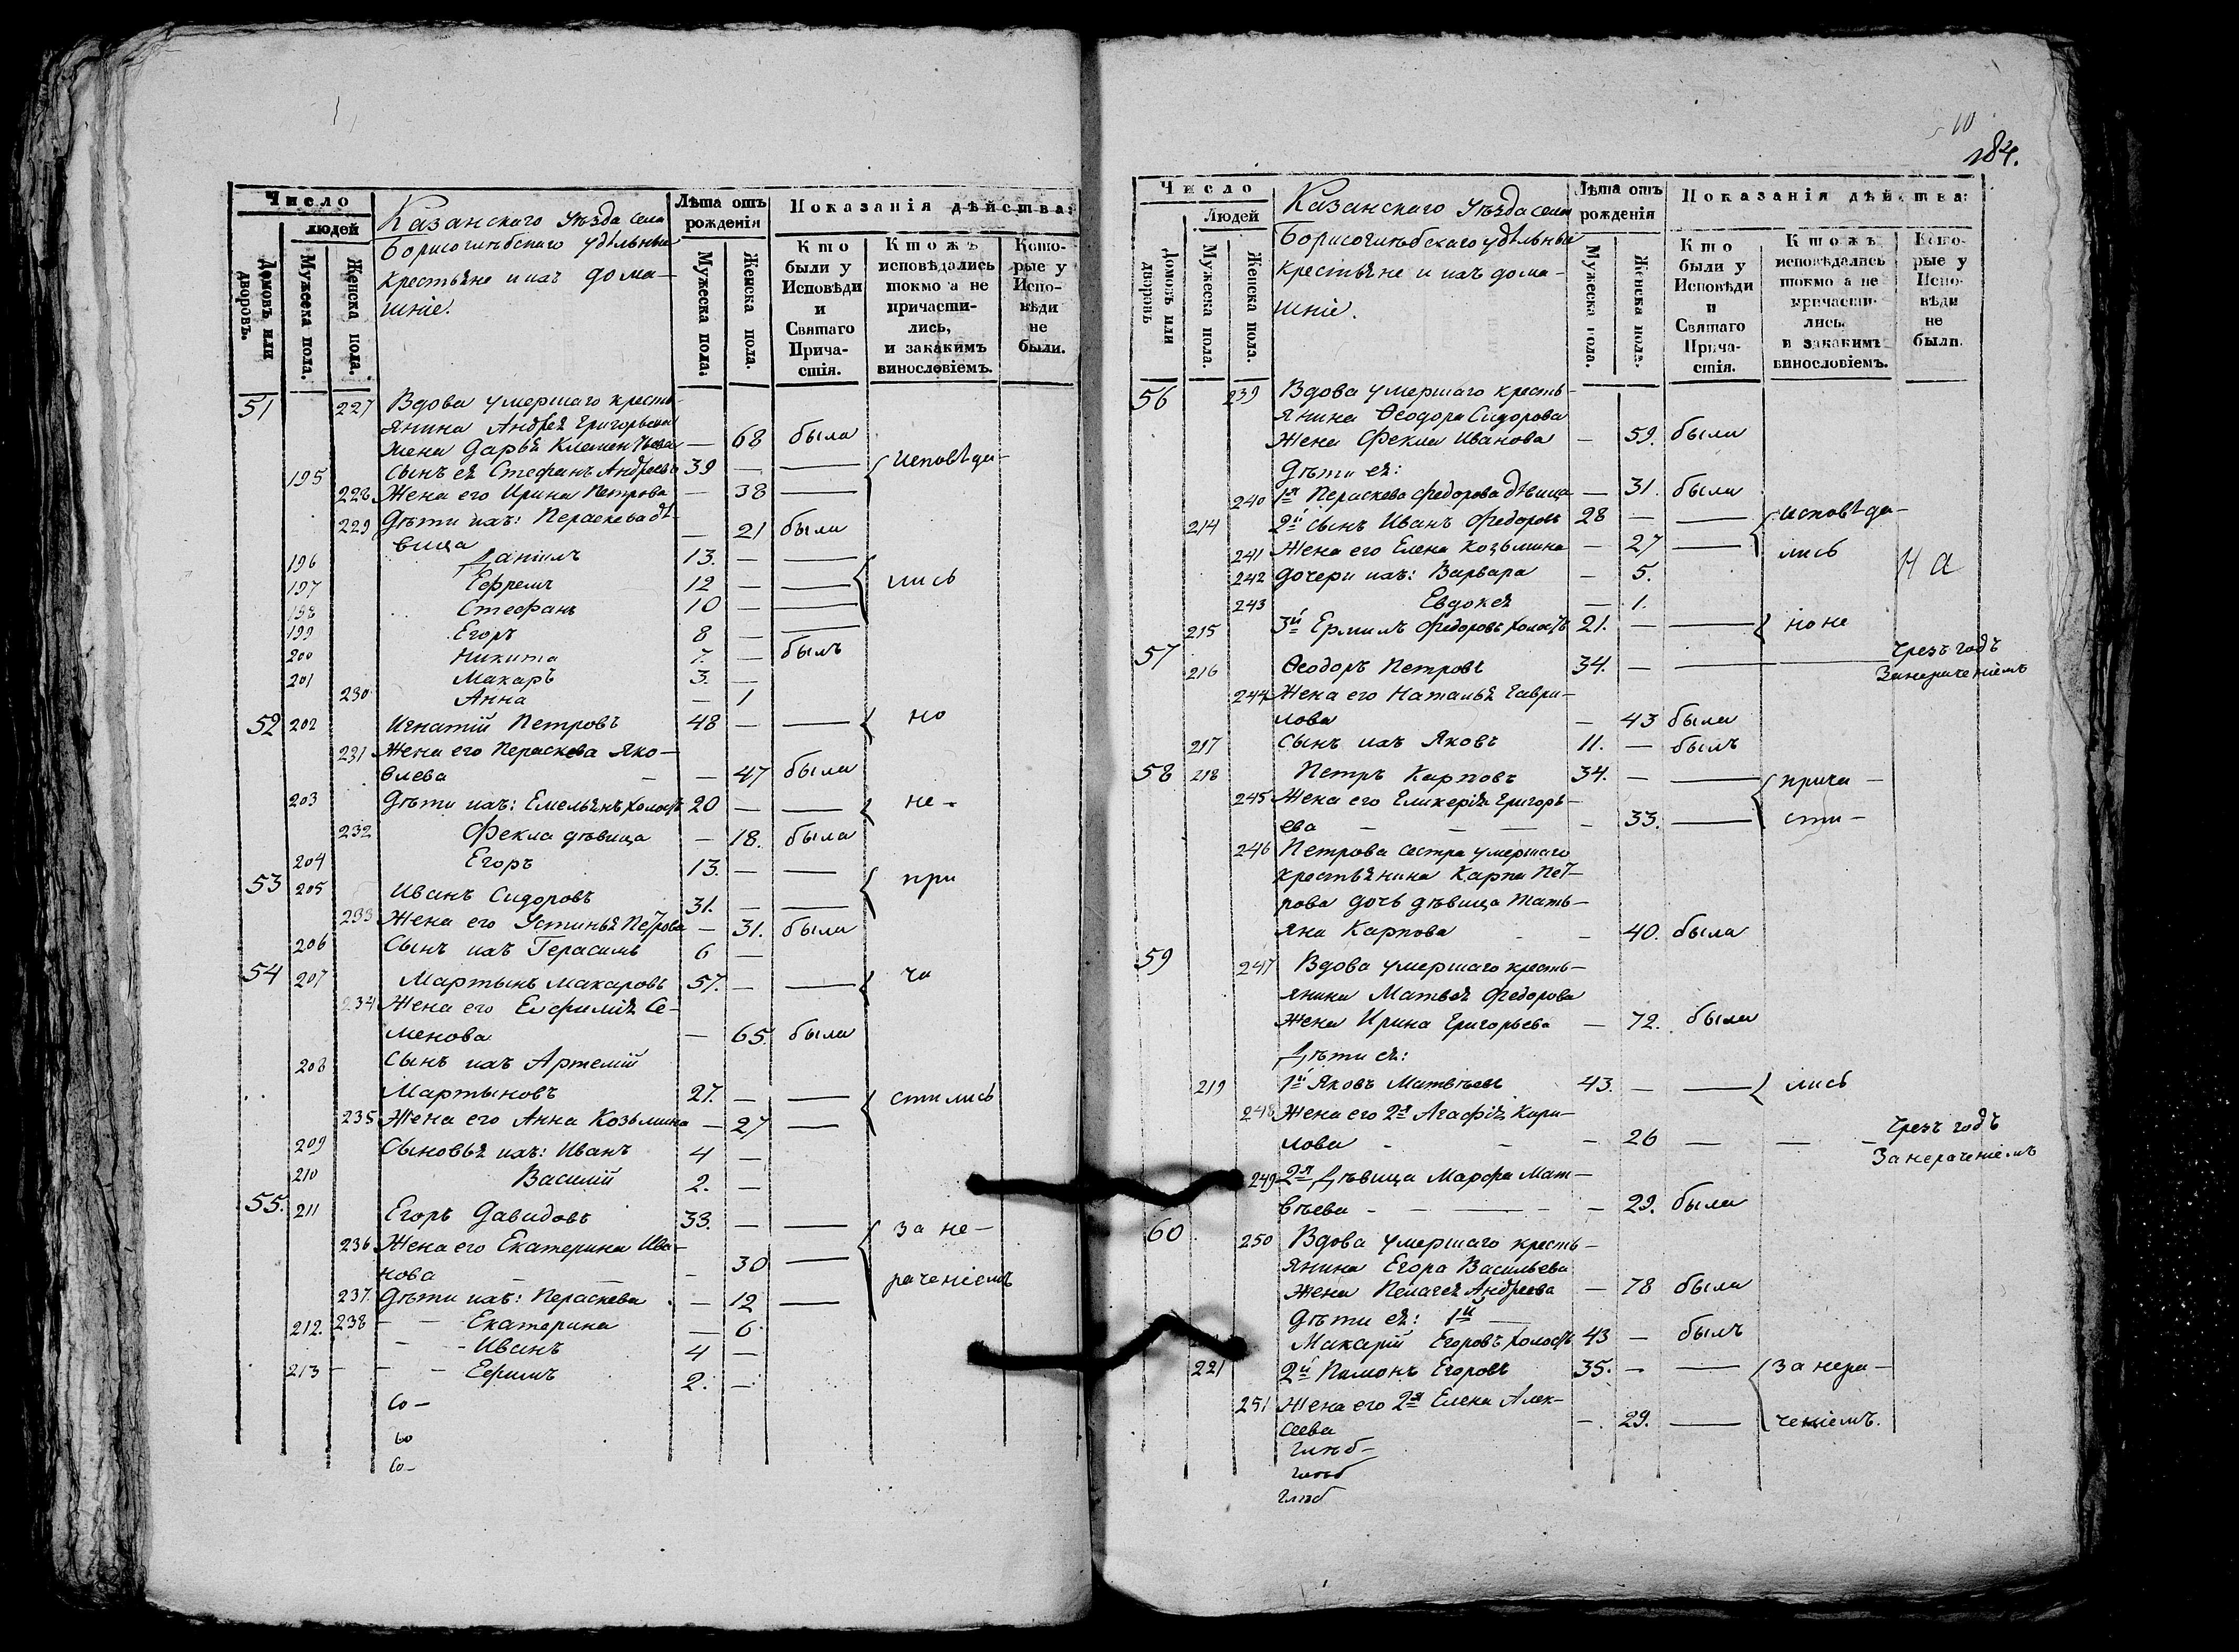 Число
людей
Домовъ или дворовъ.
Мужеска пола.
Женска пола.
Казанскаго уѣзда села
Борисоглѣбскаго удѣльныя
крестьяне и ихъ дома-
шніе.
Лѣта отъ рожденія
Мужеска пола.
Женска пола.
Показанія дѣйства:
Кто были у Исповѣди и Святаго Прича-стія.
Ктожъ исповѣдались токмо а не причасти-лись, и закакимъ винословіемъ.
Кото-рые у Испо-вѣди не были.
51 227 Вдова умершаго кресть-
янина Андрея Григорьева
жена Дарья Клементьева — 68 была
195 Сынъ ея Стефанъ Андреевъ 39 — — Исповѣда-
228 Жена его Ирина Петрова — 38 —
229 Дѣти ихъ: Параскева дѣ-
вица — 21 была
196 Данiилъ 13. — —
197 Ефремъ 12 — — лись
198 Стефанъ 10 — —
199 Егоръ 8 — —
200 Никита 7. — былъ
201 Макаръ 3. —
230 Анна — 1
52 202 Игнатій Петровъ 48 — — но
231 Жена его Параскева Яко-
влева — — 47 была
203 Дѣти ихъ: Емельянъ холостъ 20 — — не-
232 Фекла дѣвица — 18. была
204 Егоръ 13. — —
53 205 Иванъ Сидоровъ 31. — — при
233 Жена его Устинья Петрова — 31. была
206 Сынъ ихъ Герасимъ 6 —
54 207 Мартынъ Макаровъ 57. — — ча
234 Жена его Евфимія Се-
менова — 65. была
208 Сынъ ихъ Артемій
Мартыновъ 27. — — стились
235 Жена его Анна Козьмина — 27 —
209 Сыновья ихъ: Иванъ 4 —
210 Василій 2. —
55. 211 Егоръ Давидовъ 33. — — за не-
236 Жена его Екатерина Ива-
нова — — — 30 — раченіемъ
237. Дѣти ихъ: Параскева — 12 —
212. 238 — — Екатерина — 6.
— - Иванъ 4 —
213 — — — Ефимъ 2. —
Со-
бо
Со-
10
184.
Число
Людей
Домовъ или дворовъ
Мужеска пола.
Женска пола.
Казанскаго уѣзда села
Борисоглѣбскаго удѣльные
крестьяне и ихъ дома-
шніе.
Лѣта отъ рожденія
Мужеска пола.
Женска пола.
Показанія дѣйства:
Кто были у Исповѣди и Святаго Прича-стія.
Ктожъ исповѣдались токмо а не причасти-лись. и закакимъ винословіемъ.
Кото-рые у Испо-вѣди не были.
56 239 Вдова умершаго кресть-
янина Ѳеодора Сидорова
жена Фекла Иванова — 59. была
Дѣти ея:
240 1я Параскева Федорова дѣвица — 31. была
214 2й сынъ Иванъ Федоровъ 28 — — исповѣда-
241 Жена его Елена Козьмина — 27 — лись
242 Дочери ихъ: Варвара — 5. На
243 Евдокея — 1.
215 3й Ермилъ Федоровъ холостъ 21. — — но не
57 216 Ѳеодоръ Петровъ 34. — — Чрезъ годъ
Занераченіемъ
244 Жена его Наталья Гаври-
лова — 43 была
217 Сынъ ихъ Яковъ 11. — былъ
58 218 Петръ Карповъ 34. — — прича-
245 Жена его Гликерія Григорь-
ева — — — — 33. — сти-
246 Петрова сестра умершаго
крестьянина Карпа Пет-
рова дочь дѣвица Тать-
яна Карпова - — 40. была
59 247 Вдова умершаго кресть-
янина Матвея Федорова
жена Ирина Григорьева — 72. была
Дѣти ея:
219 1й Яковъ Матвѣевъ 43. — — лись
248 Жена его 2я Агафія Кири-
лова - - — 26 — — - Чрезъ годъ
Занераченіемъ
249 2я дѣвица Марфа Мат-
вѣева - - — - — 29. была
60 250 Вдова умершаго кресть-
янина Егора Васильева
жена Пелагея Андреева — 78 была
Дѣти ея: 1й —
Макарій Егоровъ холостъ 43 — былъ
221 2й Памонъ Егоровъ 35. — — за нера-
251 Жена его 2я Елена Алек-
сеева —. 29. — ченіемъ.
глѣб-
глѣб
глѣб